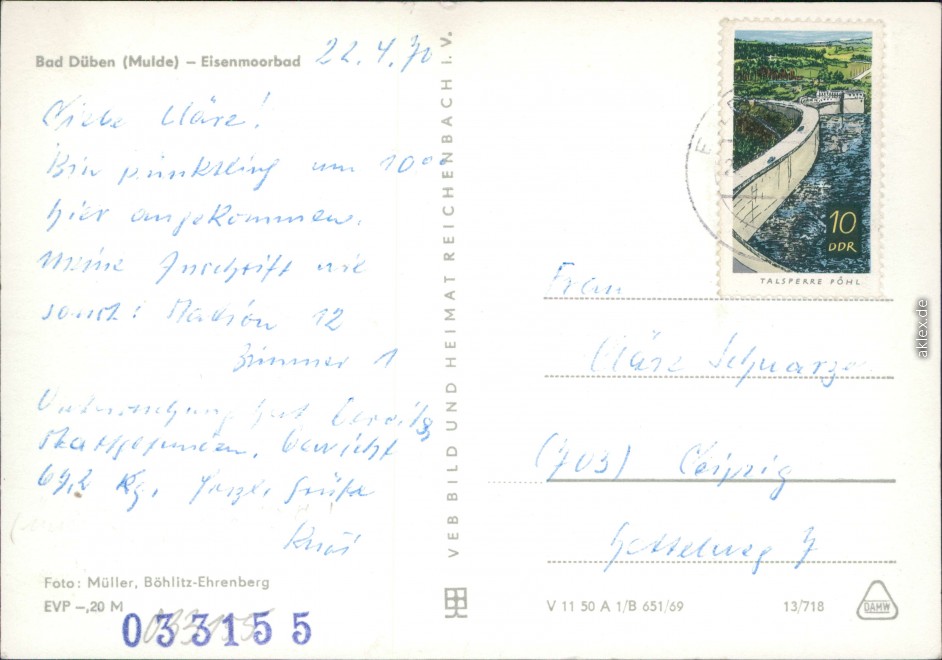 Bad Düben (Mulde) – Eisenmoorbad
22.4.70
Liebe Kläre!
Bin pünktlich um 10⁰⁰
hier angekommen.
Meine Anschrift wie
sonst: Station 12
Zimmer 1
Untersuchung hat bereits
stattgefunden. Gewicht
69,2 Kg. Herzl. Grüße
Foto: Müller, Böhlitz-Ehrenberg
EVP –,20 M
033155
033155
VEB BILD UND HEIMAT REICHENBACH I. V.
10
DDR
TALSPERRE PÖHL
Frau
Kläre
(703) Leipzig
7
V 11 50 A 1/B 651/69
13/718
DAMW
aklex.de